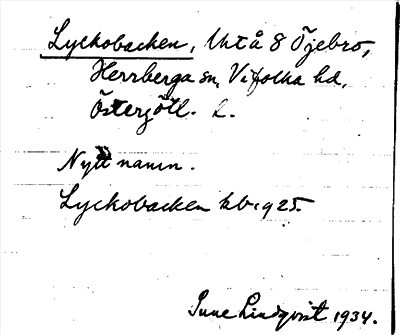 Lyckobacken, Untå 8 Öjebro,
Herrberga sn, Vifolka hd,
Östergötl. L.
Nytt namn.
Lyckobacken kb 1925.
Sune Lindqvist 1934.